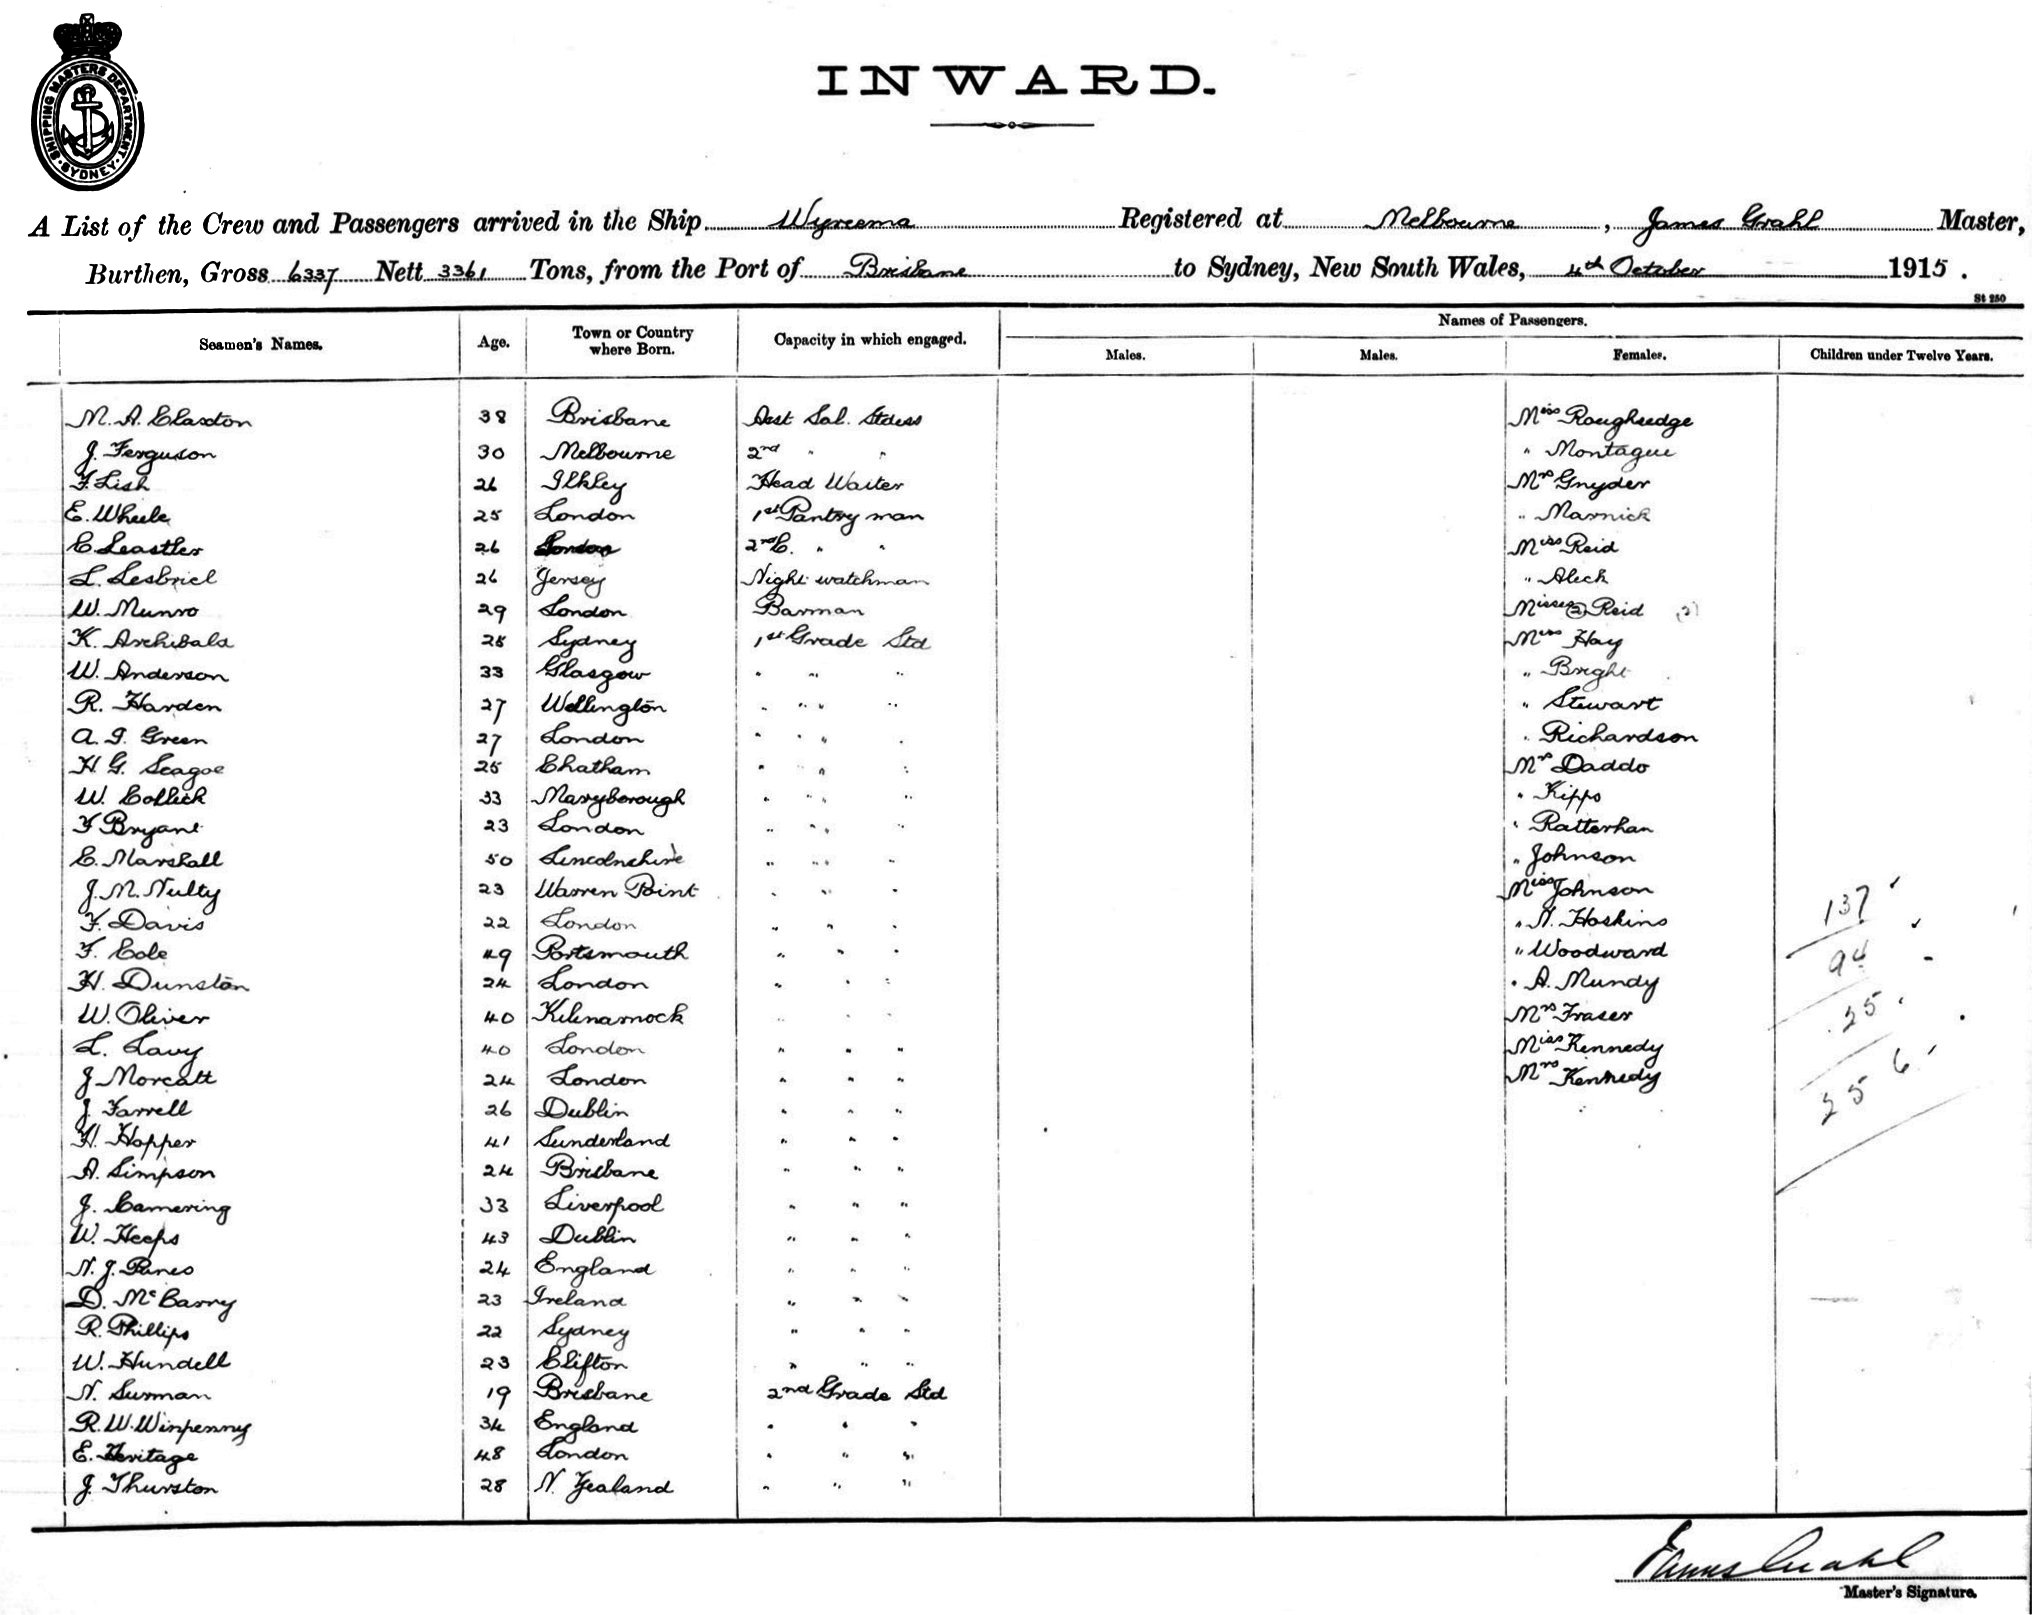 SHIPPING MASTERS DEPARTMENT · SYDNEY ·
INWARD.
A List of the Crew and Passengers arrived in the Ship Wyreema Registered at Melbourne, James Grahl Master,
Burthen, Gross 6337 Nett 3361 Tons, from the Port of Brisbane to Sydney, New South Wales, 4th October 1915.
St 250
Seamen's Names. Age. Town or Country where Born. Capacity in which engaged. Names of Passengers.
Males. Males. Females. Children under Twelve Years.
M. A. Claxton 38 Brisbane Asst Sal. Stdess Miss Roughsedge
J. Ferguson 30 Melbourne 2nd " " " Montague
F. Lish 26 Ilkley Head Waiter Mrs Gnyder
E. Wheele 25 London 1st Pantry man " Marnick
C. Leastler 26 London 2nd C. " " Miss Reid
L. Lesbriel 26 Jersey Night watchman " Aleck
W. Munro 29 London Barman Misses (2) Reid (2)
K. Archibald 25 Sydney 1st Grade Std Miss Hay
W. Anderson 33 Glasgow " " " " Bright
R. Harden 27 Wellington " " " " Stewart
A. J. Green 27 London " " " " Richardson
H. G. Seagoe 25 Chatham " " " Mrs Daddo
W. Collick 33 Maryborough " " " " Kipps
F Bryant 23 London " " " " Ratterhan
C. Marshall 50 Lincolnshire " " " " Johnson
J. M. Nulty 23 Warren Point " " " Miss Johnson
F. Davis 22 London " " " " N. Hoskins 137
F. Cole 49 Portsmouth " " " " Woodward 94
H. Dunston 24 London " " " " A. Mundy
W. Oliver 40 Kilmarnock " " " Mrs Fraser 25
L. Lavy 40 London " " " Miss Kennedy 6
J Morcatt 24 London " " " Mrs Kennedy 25
J. Farrell 26 Dublin " " "
H. Hopper 41 Sunderland " " "
A. Simpson 24 Brisbane " " "
J. Camering 33 Liverpool " " "
W. Heeps 43 Dublin " " "
N. J. Panes 24 England " " "
D. McBarry 23 Ireland " " "
R. Phillips 22 Sydney " " "
W. Hundell 23 Clifton " " "
N. Surman 19 Brisbane 2nd Grade Std
R. W. Winpenny 34 England " " "
E. Heritage 48 London " " "
J. Thurston 28 N. Zealand " " "
James Grahl
Master's Signature.